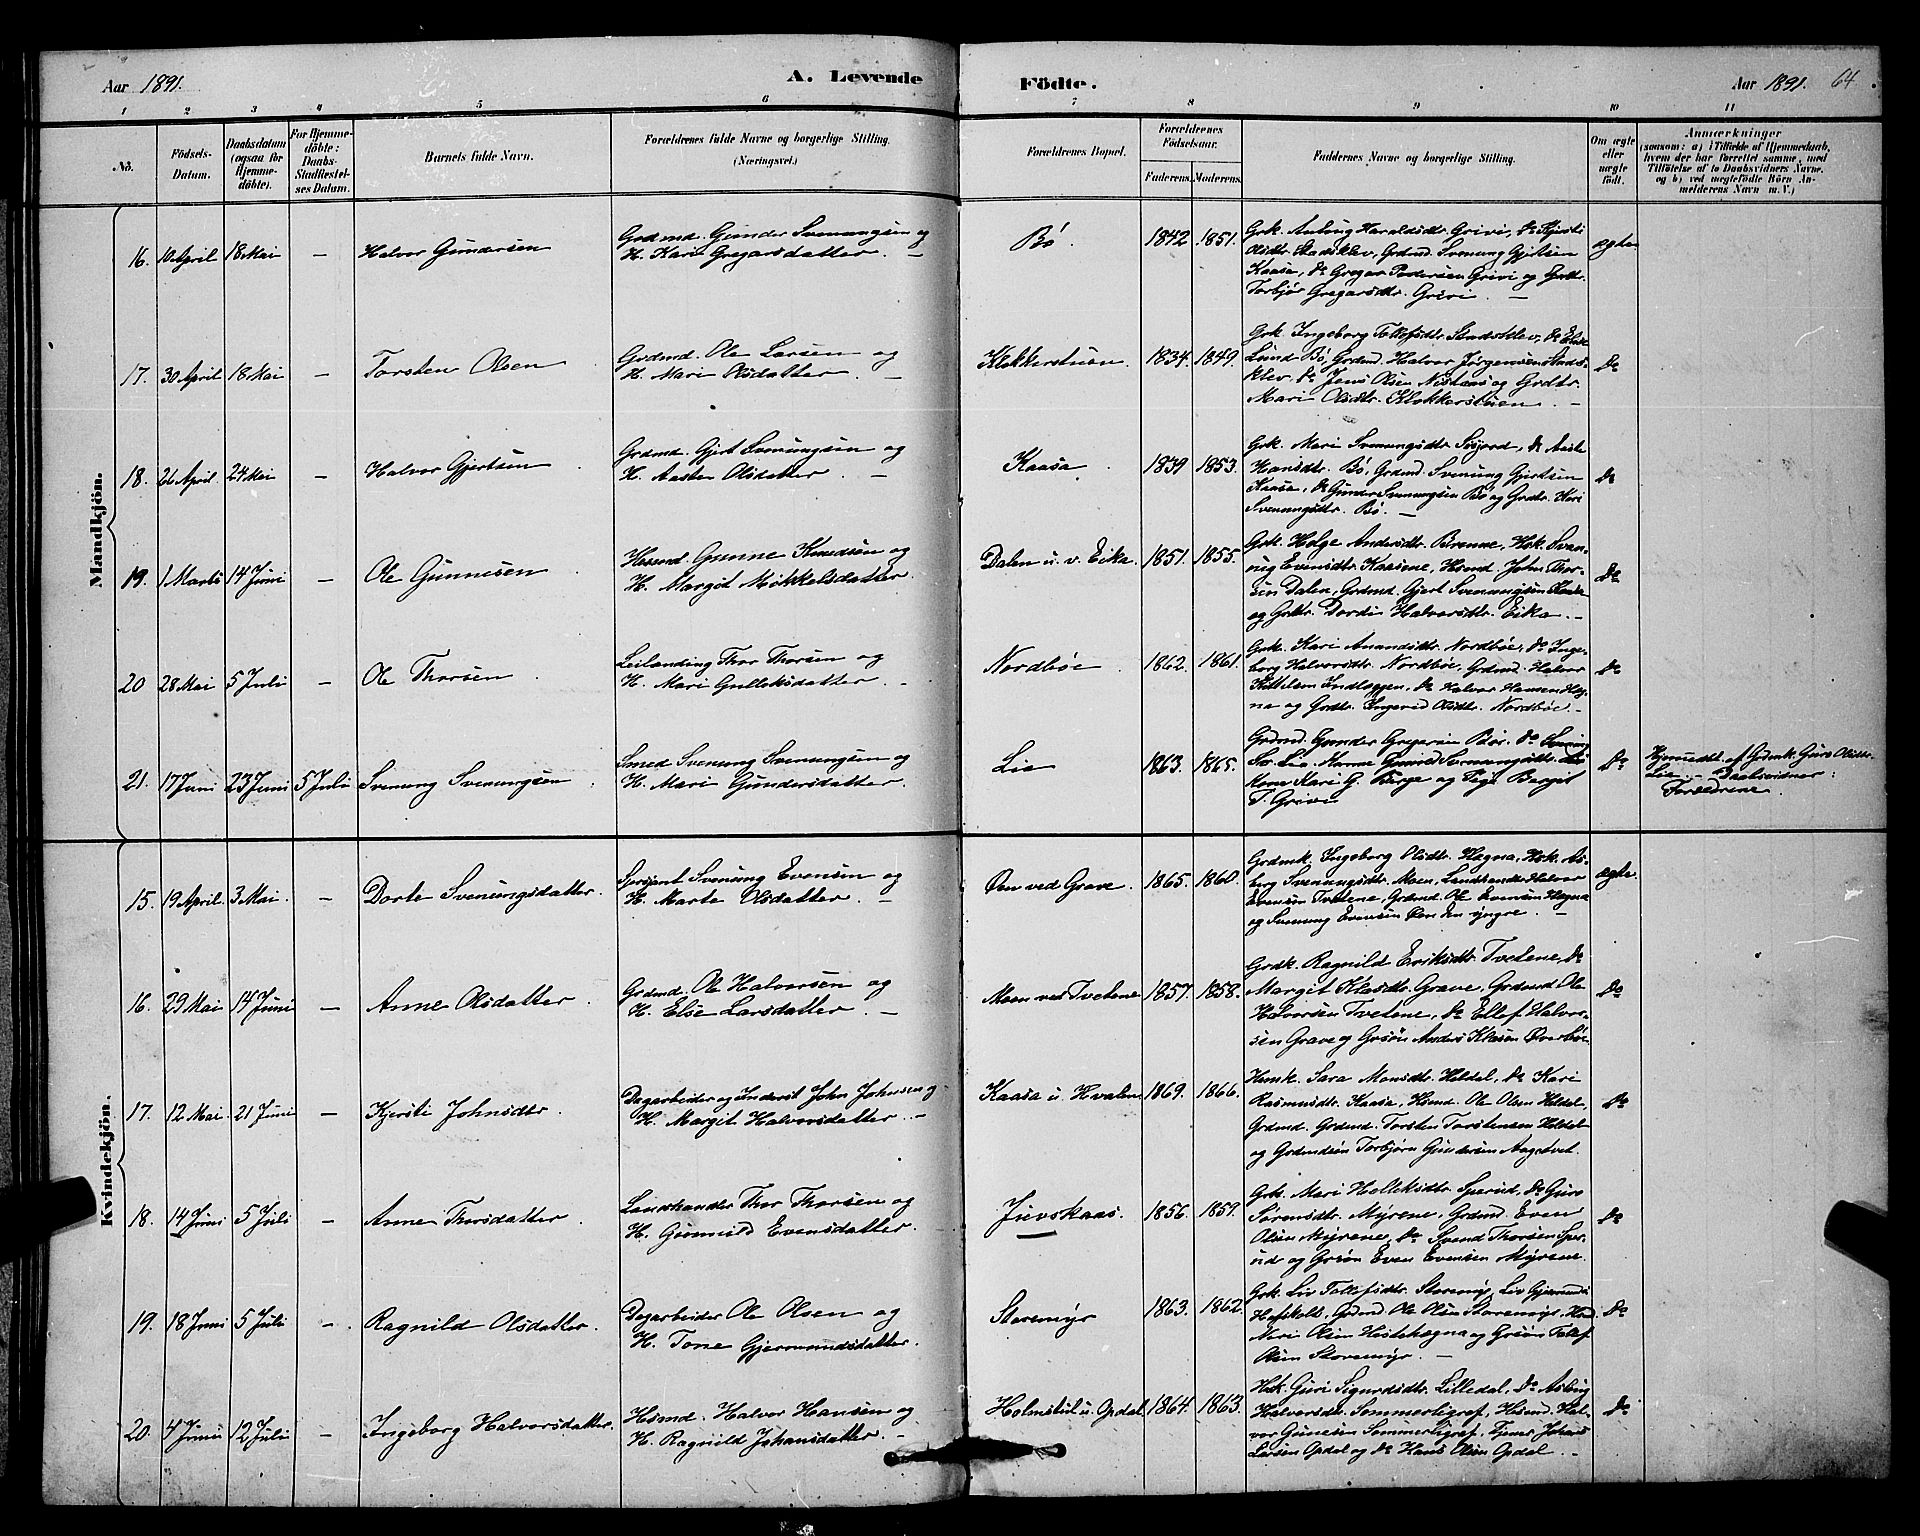 Aar 1891.
A. Levende
Födte.
Aar 1891. 64
1 2 3 4 5 6 7 8 9 10 11
No.
Födsels-Datum.
Daabsdatum (ogsaa for Hjemmedöbte).
For Hjemmedöbte: Daabs-Stadfæstelses Datum.
Barnets fulde Navn.
Forældrenes fulde Navne og borgerlige Stilling.
(Næringsvei.)
Forældrenes Bopæl.
Forældrenes Födselsaar.
Faderens. Moderens.
Faddernes Navne og borgerlige Stilling.
Om ægte eller uægte födt.
Anmærkninger
(saasom: a) i Tilfælde af Hjemmedaab, hvem der har forrettet samme, med Tilföielse af to Daabsvidners Navne. og b) ved uægtefödte Börn Anmelderens Navn m. V.)
Mandkjön.
16. 10 April 18 Mai — Halvor Gundersen
Grdmd. Gunder Svenungsen og
H. Kari Gregarsdatter. —
Bö. 1842 1851.
Grk. Aaberg Haraldsdtr. Grivi, do Kjersti
Olsdtr. Stadsklev, Grdmd. Svenung Gjertsen
Kaasa, do Gregar Pedersen Grivi og Grdtr.
Torbjör Gregarsdtr. Grivi. —
ægte
17. 30 April 18 Mai — Torsten Olsen
Grdmd. Ole Larsen og
H. Mari Olsdatter. —
Klokkerstuen. 1834. 1849.
Grk. Ingeborg Tollefsdtr. Stadsklev, do Else
Lund Bö, Grdmd. Halvor Jörgensen Stads-
klev, do Jens Olsen Nistaas og Grdtr.
Mari Olsdtr. Klokkerstuen. —
do
18. 26 April 24 Mai — Halvor Gjertsen
Grdmd. Gjert Svenungsen og
H. Aaste Olsdatter. —
Kaasa 1839 1853.
Grk. Mari Svenungsdtr. , do Aaste
Hansdtr. Bö, Grdmd. Svenung Gjertsen
Kaasa, do Gunder Svenungsen Bö og Grdtr. Kari
Svenungsdtr. Bö. —
do
19. 1 Marts 14 Juni — Ole Gunnesen
Husmd. Gunne Knudsen og
H. Margit Mikkelsdatter.
Dalen u. v. Eika. 1851. 1855.
Grk. Helge Andersdtr. Brenne, Hsk. Svan-
ug Evensdtr. Kaasene, Hsmd. John Thor-
sen Dalen, Grdmd. Gjert Svenungsen Kaasa
og Grdtr. Dordi Halvorsdtr. Eika. —
do
20 28 Mai 5 Juli — Ole Thorsen
Leilending Thor Thorsen og
H. Mari Gulleksdatter. —
Nordböe 1862. 1861.
Grk. Kari Amundsdtr. Nordböe, do Inge-
borg Halvorsdtr. Nordböe, Grdmd. Halvor
Kittelsen Indlæggen, do Halvor Hansen Hag-
na og Grdtr. Ingerid Olsdtr. Nordböe. —
do
21. 17 Juni 23 Juni 5 Juli Svenung Svenungsen
Smed Svenung Svenungsen og
H. Mari Gundersdatter.
Lie 1863. 1865.
Grdmd. Gunder Gregersen Bör. do Svenung
Sv. Lia, Kone Gunild Svenungsdtr. Lia
Kone Kari G. Börge og Pige Bergit
T. Grivi
do
Hjemmedbt. af Grdmk. Guro Olsdtr.
Lie — Daabsvidner:
Forældrene.
Kvindekjön.
15. 19 April 3 Mai. — Dorte Svenungsdatter.
Sersjant Svenung Evensen og
H. Marte Olsdatter. —
Öen ved Grave. 1865. 1860.
Grdmk. Ingeborg Olsdtr. Hagna, Hsk. As-
berg Svenungsdtr. Moen, Landhandler Halvor
Evensen Tvetene, Grdmd. Ole Evensen Hagna
og Svenung Evensen Öen den yngre. —
ægte.
16. 29 Mai 14 Juni — Anne Olsdatter
Grdmd. Ole Halvorsen og
H. Else Larsdatter. —
Moen ved Tvetene 1857. 1858.
Grdk. Ragnild Eriksdtr. Tvetene, do
Margit Klasdtr. Grave, Grdmd Ole
Halvorsen Tvetene, do Ellef Halvor-
sen Grave og Grsön Anders Klasen Överböe.
do
17. 12 Mai 21 Juni — Kjersti Johnsdtr.
Dagarbeider og Inderst John Johnsen og
H. Margit Halvorsdatter. —
Kaasa u. Hvalen 1869. 1866.
Hsmk. Sara Monsdtr. Heldal, do Kari
Rasmusdtr. Kaasa, Hsmd. Ole Olsen Heldal,
Grdmd. Grdmd. Torsten Torstensen Heldal
og Grdmdsön Torbjörn Gundersen Aagetveit.
do
18. 14 Juni 5 Juli — Anne Thorsdatter
Landhandler Thor Thorsen og
H. Gunnild Evensdatter.
Juvskaas. 1856. 1859.
Grk. Mari Helleksdtr. Sperud, do Guro
Sörensdtr. Myrene, Grdmd. Even
Olsen Myrene, do Svend Thorsen Sper-
ud og Grsön Even Evensen Myrene.
do
19. 18 Juni 5 Juli — Ragnild Olsdatter.
Dagarbeider Ole Olsen og
H. Tone Gjermundsdatter.
Storemyr 1863. 1862.
Grk. Liv Tollefsdtr. Storemyr, Liv Gjermunds
, Grdmd Ole Olsen Storemyr,
Olsen Hestehagna og Grsön Tollef
Olsen Storemyr. —
do
20. 4 Juni 12 Juli — Ingeborg Halvorsdatter.
Hsmd. Halvor Hansen og
H. Ragnild Johansdatter. —
Holmstul u. Opdal 1864. 1863.
Hsk. Guri Sigurdsdtr. Lilledal, do Asberg
Halvorsdtr. Sommerligref, Hsmd. Hal-
vor Gunesen Sommerligref, Tjener Johans
Larsen Opdal og do Hans Olsen Opdal. —
do